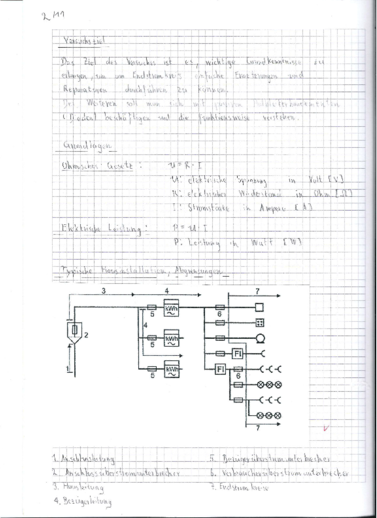 2/11
Versuchsziel
Das Ziel des Versuches ist es, wichtige Grundkenntnisse zu
erlangen, um am Endstromkreis einfache Erweiterungen und
Reparaturen durchführen zu können.
Des Weiteren soll man sich mit
(Dioden) beschäftigen und die Funktionsweise verstehen.
Grundlagen
Ohmsches Gesetz: U = R · I
U: elektrische Spannung in Volt [V]
R: elektrischer Widerstand in Ohm [Ω]
I: Stromstärke in Ampere [A]
Elektrische Leistung: P = U · I
P: Leistung in Watt [W]
Typische Hausinstallation, Abgrenzungen
3 4 7
5 kWh 6
4
2
5 kWh 6
FI
5 kWh FI 6
1
7
1. Anschlussleitung 5. Bezügerüberstromunterbrecher
2. Anschlussüberstromunterbrecher 6. Verbraucherüberstromunterbrecher
3. Hausleitung 7. Endstromkreise
4. Bezügerleitung